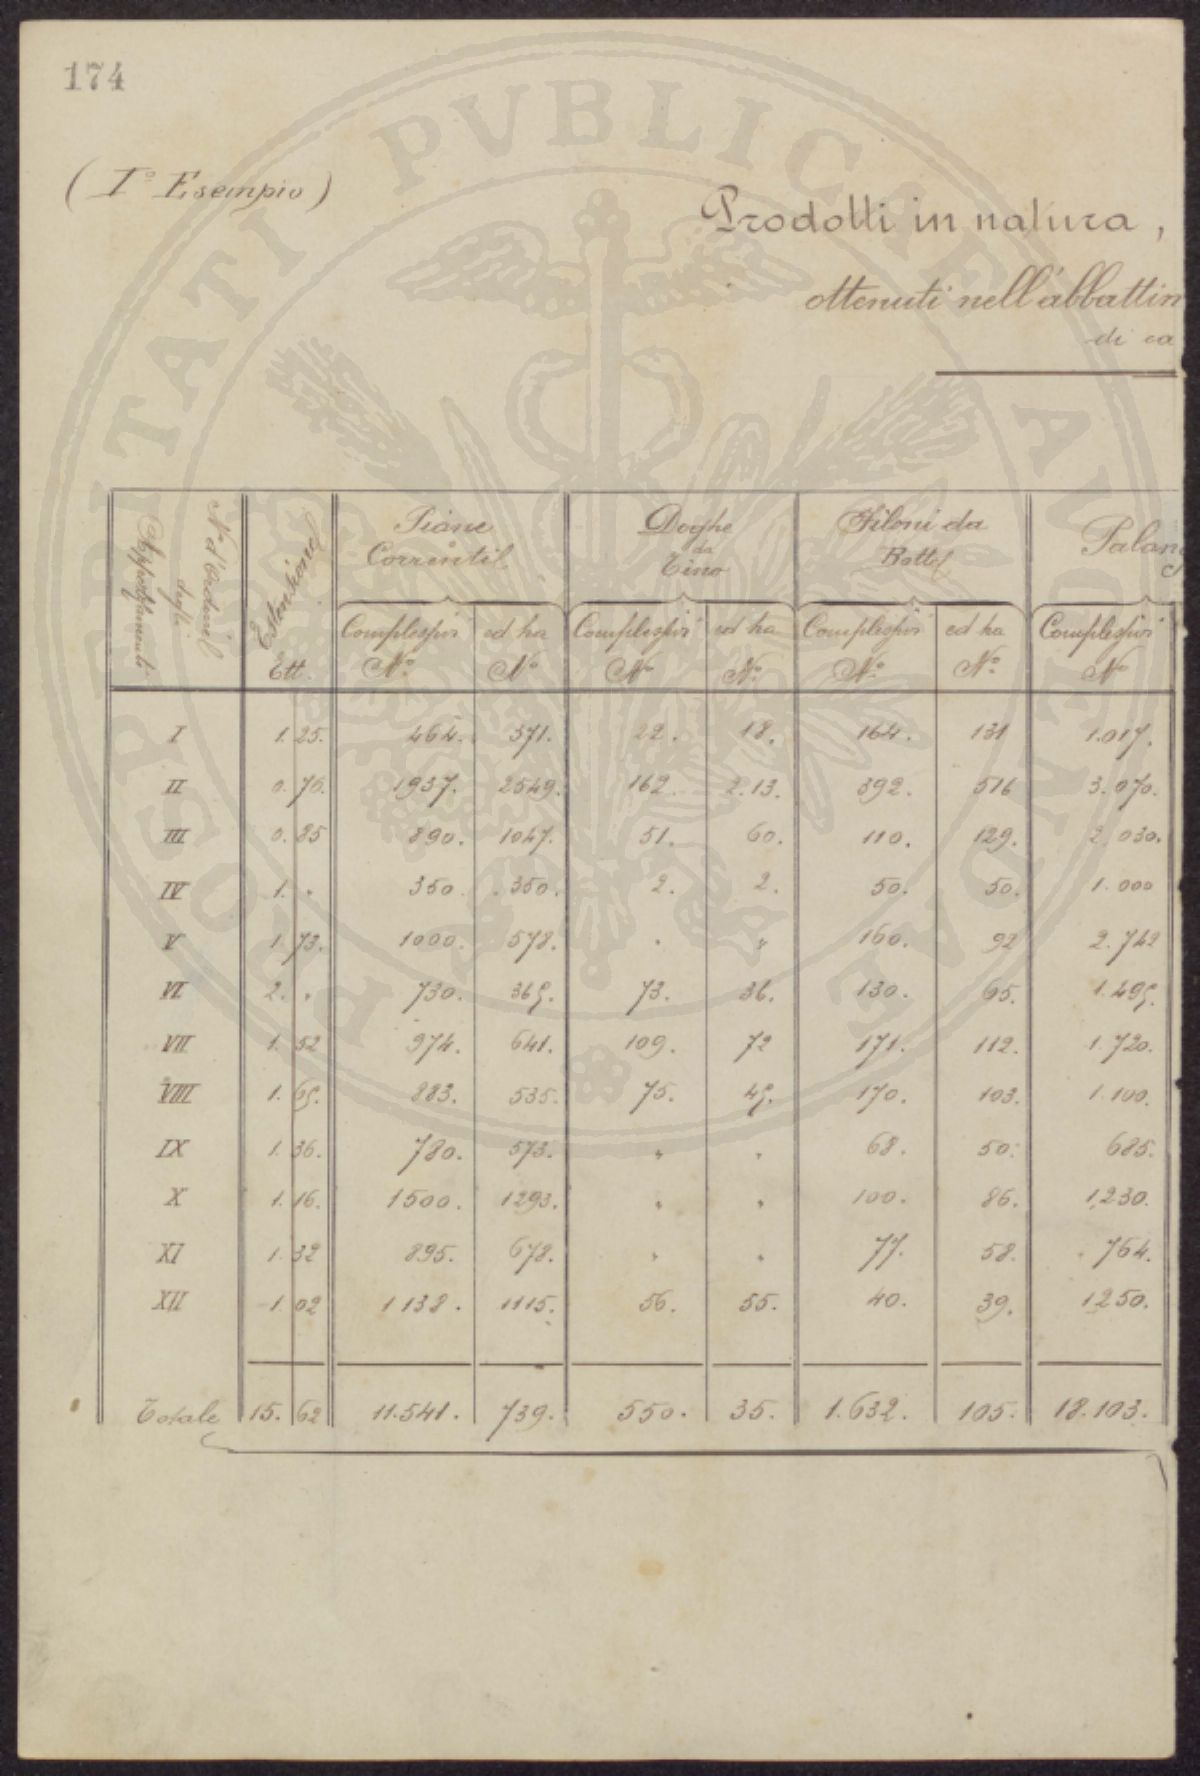 174
(I° Esempio)
Prodotti in natura,
ottenuti nell'abbattim
di ca
N° d'Ordine degli Appezzamenti | Estensione Ett. | Piane Correntil Complessivi N° | ad ha N° | Doghe da Tino Complessivi N° | ad ha N° | Filoni da Botte Complessivi N° | ad ha N° | Palan Complessivi N°
I 1. 25. 464. 371. 22. 18. 164. 131 1.017.
II 0. 76. 1937. 2549. 162. 2.13. 392. 516 3.070.
III 0. 85 890. 1047. 51. 60. 110. 129. 2.030.
IV 1. " 350. 350. 2. 2. 50. 50. 1.000
V 1. 73. 1000. 578. " " 160. 92 2.742
VI 2. " 730. 365. 73. 36. 130. 65. 1.495.
VII 1. 52 974. 641. 109. 72 171. 112. 1.720.
VIII 1. 65. 883. 535. 75. 45. 170. 103. 1.100.
IX 1. 36. 780. 573. " " 68. 50. 685.
X 1. 16. 1500. 1293. " " 100. 86. 1.230.
XI 1. 32 895. 678. " " 77. 58. 764.
XII 1. 02 1138. 1115. 56. 55. 40. 39. 1250.
Totale 15. 62 11.541. 739. 550. 35. 1.632. 105. 18.103.
PROSPERITATI PVBLICAE AVGENDAE